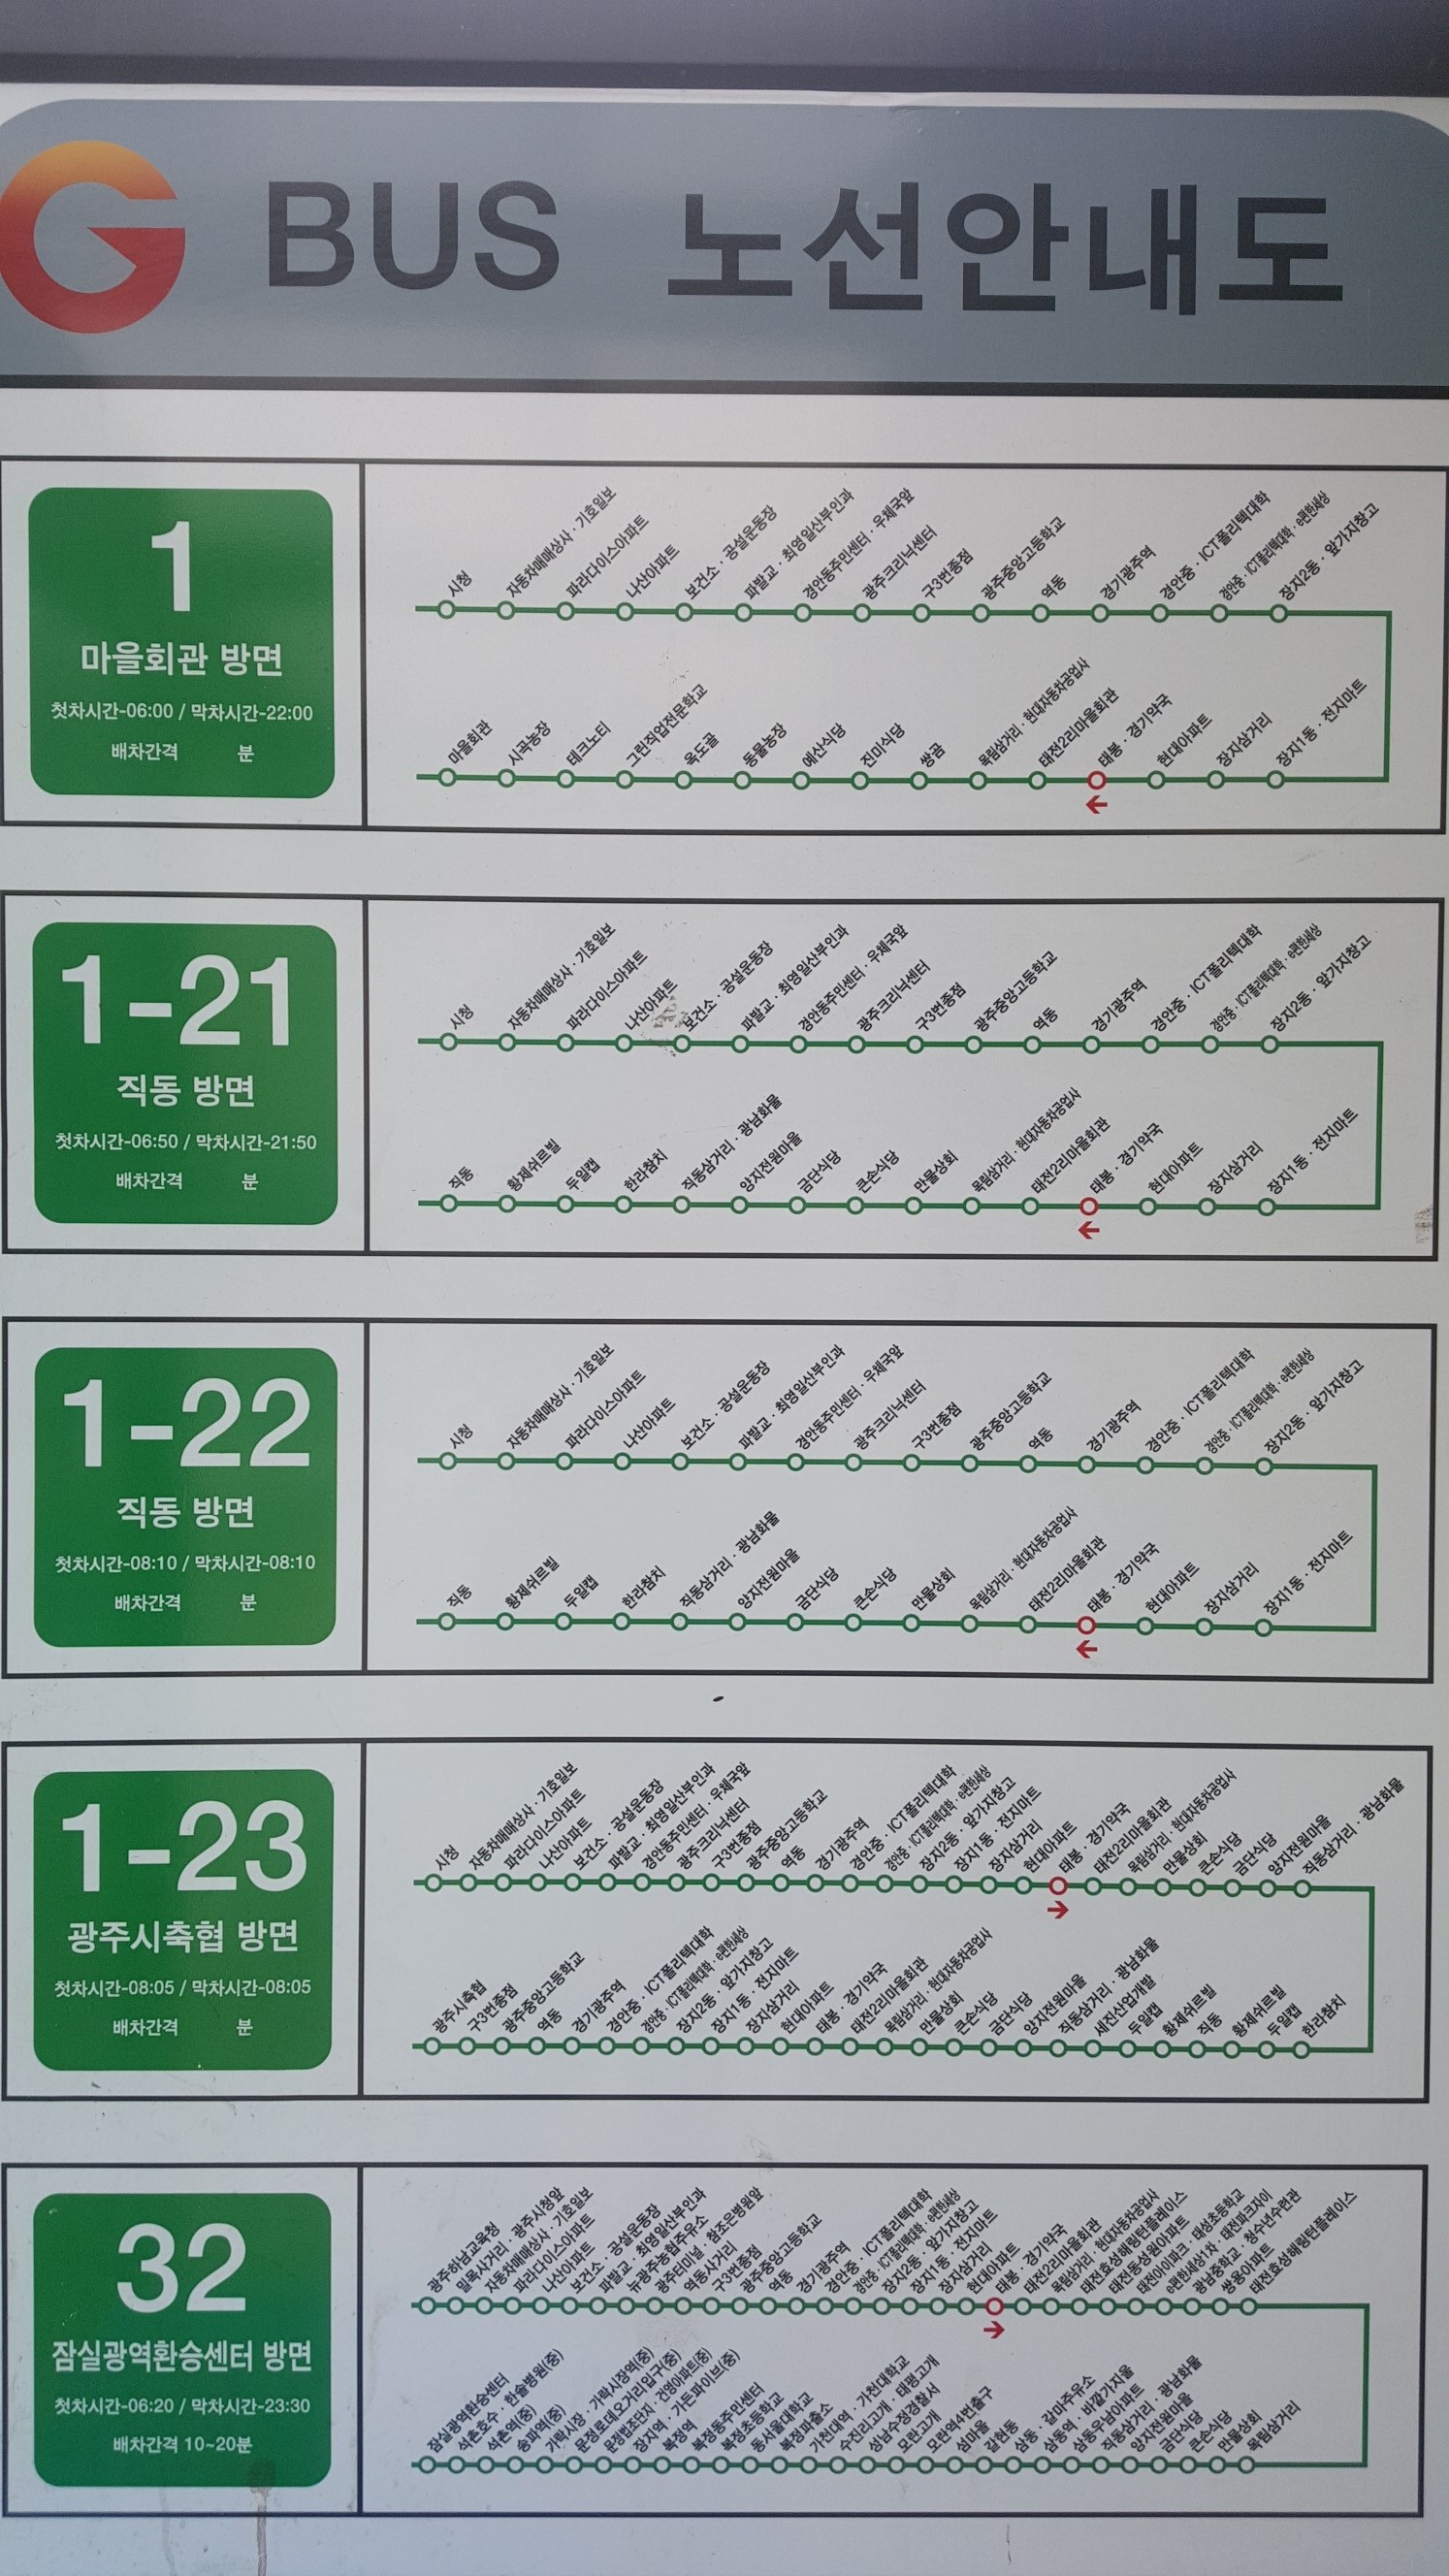 G BUS 노선안내도
1
마을회관 방면
첫차시간-06:00 / 막차시간-22:00
배차간격 분
시청
자동차매매상사 · 기호일보
파라다이스아파트
나산아파트
보건소 · 공설운동장
파발교 · 최영일산부인과
경안동주민센터 · 우체국앞
광주크리닉센터
구3번종점
광주중앙고등학교
역동
경기광주역
경안중 · ICT폴리텍대학
경안중 · ICT폴리텍대학 · e편한세상
장지2동 · 앞가지창고
마을회관
시곡농장
테크노티
그린직업전문학교
옥도골
동물농장
예산식당
진미식당
쌍곰
목림삼거리 · 현대자동차공업사
태전2리마을회관
태봉 · 경기약국
현대아파트
장지삼거리
장지1동 · 전지마트
1-21
직동 방면
첫차시간-06:50 / 막차시간-21:50
배차간격 분
시청
자동차매매상사 · 기호일보
파라다이스아파트
나산아파트
보건소 · 공설운동장
파발교 · 최영일산부인과
경안동주민센터 · 우체국앞
광주크리닉센터
구3번종점
광주중앙고등학교
역동
경기광주역
경안중 · ICT폴리텍대학
경안중 · ICT폴리텍대학 · e편한세상
장지2동 · 앞가지창고
직동
황제쉬르빌
두일캡
한라참치
직동삼거리 · 광남화물
양지전원마을
금단식당
큰손식당
만물상회
목림삼거리 · 현대자동차공업사
태전2리마을회관
태봉 · 경기약국
현대아파트
장지삼거리
장지1동 · 전지마트
1-22
직동 방면
첫차시간-08:10 / 막차시간-08:10
배차간격 분
시청
자동차매매상사 · 기호일보
파라다이스아파트
나산아파트
보건소 · 공설운동장
파발교 · 최영일산부인과
경안동주민센터 · 우체국앞
광주크리닉센터
구3번종점
광주중앙고등학교
역동
경기광주역
경안중 · ICT폴리텍대학
경안중 · ICT폴리텍대학 · e편한세상
장지2동 · 앞가지창고
직동
황제쉬르빌
두일캡
한라참치
직동삼거리 · 광남화물
양지전원마을
금단식당
큰손식당
만물상회
목림삼거리 · 현대자동차공업사
태전2리마을회관
태봉 · 경기약국
현대아파트
장지삼거리
장지1동 · 전지마트
1-23
광주시축협 방면
첫차시간-08:05 / 막차시간-08:05
배차간격 분
시청
자동차매매상사 · 기호일보
파라다이스아파트
나산아파트
보건소 · 공설운동장
파발교 · 최영일산부인과
경안동주민센터 · 우체국앞
광주크리닉센터
구3번종점
광주중앙고등학교
역동
경기광주역
경안중 · ICT폴리텍대학
경안중 · ICT폴리텍대학 · e편한세상
장지2동 · 앞가지창고
장지1동 · 전지마트
장지삼거리
현대아파트
태봉 · 경기약국
태전2리마을회관
목림삼거리 · 현대자동차공업사
만물상회
큰손식당
금단식당
양지전원마을
직동삼거리 · 광남화물
광주시축협
구3번종점
광주중앙고등학교
역동
경기광주역
경안중 · ICT폴리텍대학
경안중 · ICT폴리텍대학 · e편한세상
장지2동 · 앞가지창고
장지1동 · 전지마트
장지삼거리
현대아파트
태봉 · 경기약국
태전2리마을회관
목림삼거리 · 현대자동차공업사
만물상회
큰손식당
금단식당
양지전원마을
직동삼거리 · 광남화물
세진산업개발
두일캡
황제쉬르빌
직동
황제쉬르빌
두일캡
한라참치
32
잠실광역환승센터 방면
첫차시간-06:20 / 막차시간-23:30
배차간격 10~20분
광주하남교육청
밀목사거리 · 광주시청앞
자동차매매상사 · 기호일보
파라다이스아파트
나산아파트
보건소 · 공설운동장
파발교 · 최영일산부인과
뉴광주농협주유소
광주터미널 · 참조은병원앞
역동사거리
구3번종점
광주중앙고등학교
역동
경기광주역
경안중 · ICT폴리텍대학
경안중 · ICT폴리텍대학 · e편한세상
장지2동 · 앞가지창고
장지1동 · 전지마트
장지삼거리
현대아파트
태봉 · 경기약국
태전2리마을회관
목림삼거리 · 현대자동차공업사
태전효성해링턴플레이스
태전동성원아파트
태전아이파크 · 태성초등학교
e편한세상1차 · 태전파크자이
광남중학교 · 청소년수련관
쌍용아파트
태전효성해링턴플레이스
잠실광역환승센터
석촌호수 · 한솔병원(중)
석촌역(중)
송파역(중)
가락시장 · 가락시장역(중)
문정로데오거리입구(중)
문정법조단지 · 건영아파트(중)
장지역 · 가든파이브(중)
복정역
복정동주민센터
복정초등학교
동서울대학교
복정파출소
가천대역 · 가천대학교
수진리고개 · 태평고개
성남수정경찰서
모란고개
모란역4번출구
섬마을
갈현동
삼동 · 갈마주유소
삼동역 · 바깥가지울
삼동우남아파트
직동삼거리 · 광남화물
양지전원마을
금단식당
큰손식당
만물상회
목림삼거리